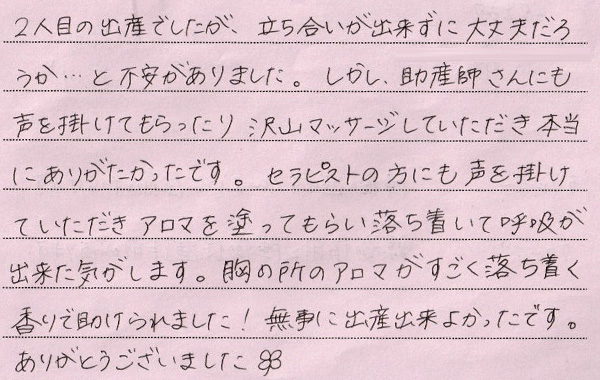 2人目の出産でしたが、立ち合いが出来ずに大丈夫だろ
うか…と不安がありました。しかし、助産師さんにも
声を掛けてもらったり沢山マッサージしていただき本当
にありがたかったです。セラピストの方にも声を掛け
ていただきアロマを塗ってもらい落ち着いて呼吸が
出来た気がします。胸の所のアロマがすごく落ち着く
香りで助けられました！無事に出産出来よかったです。
ありがとうございました